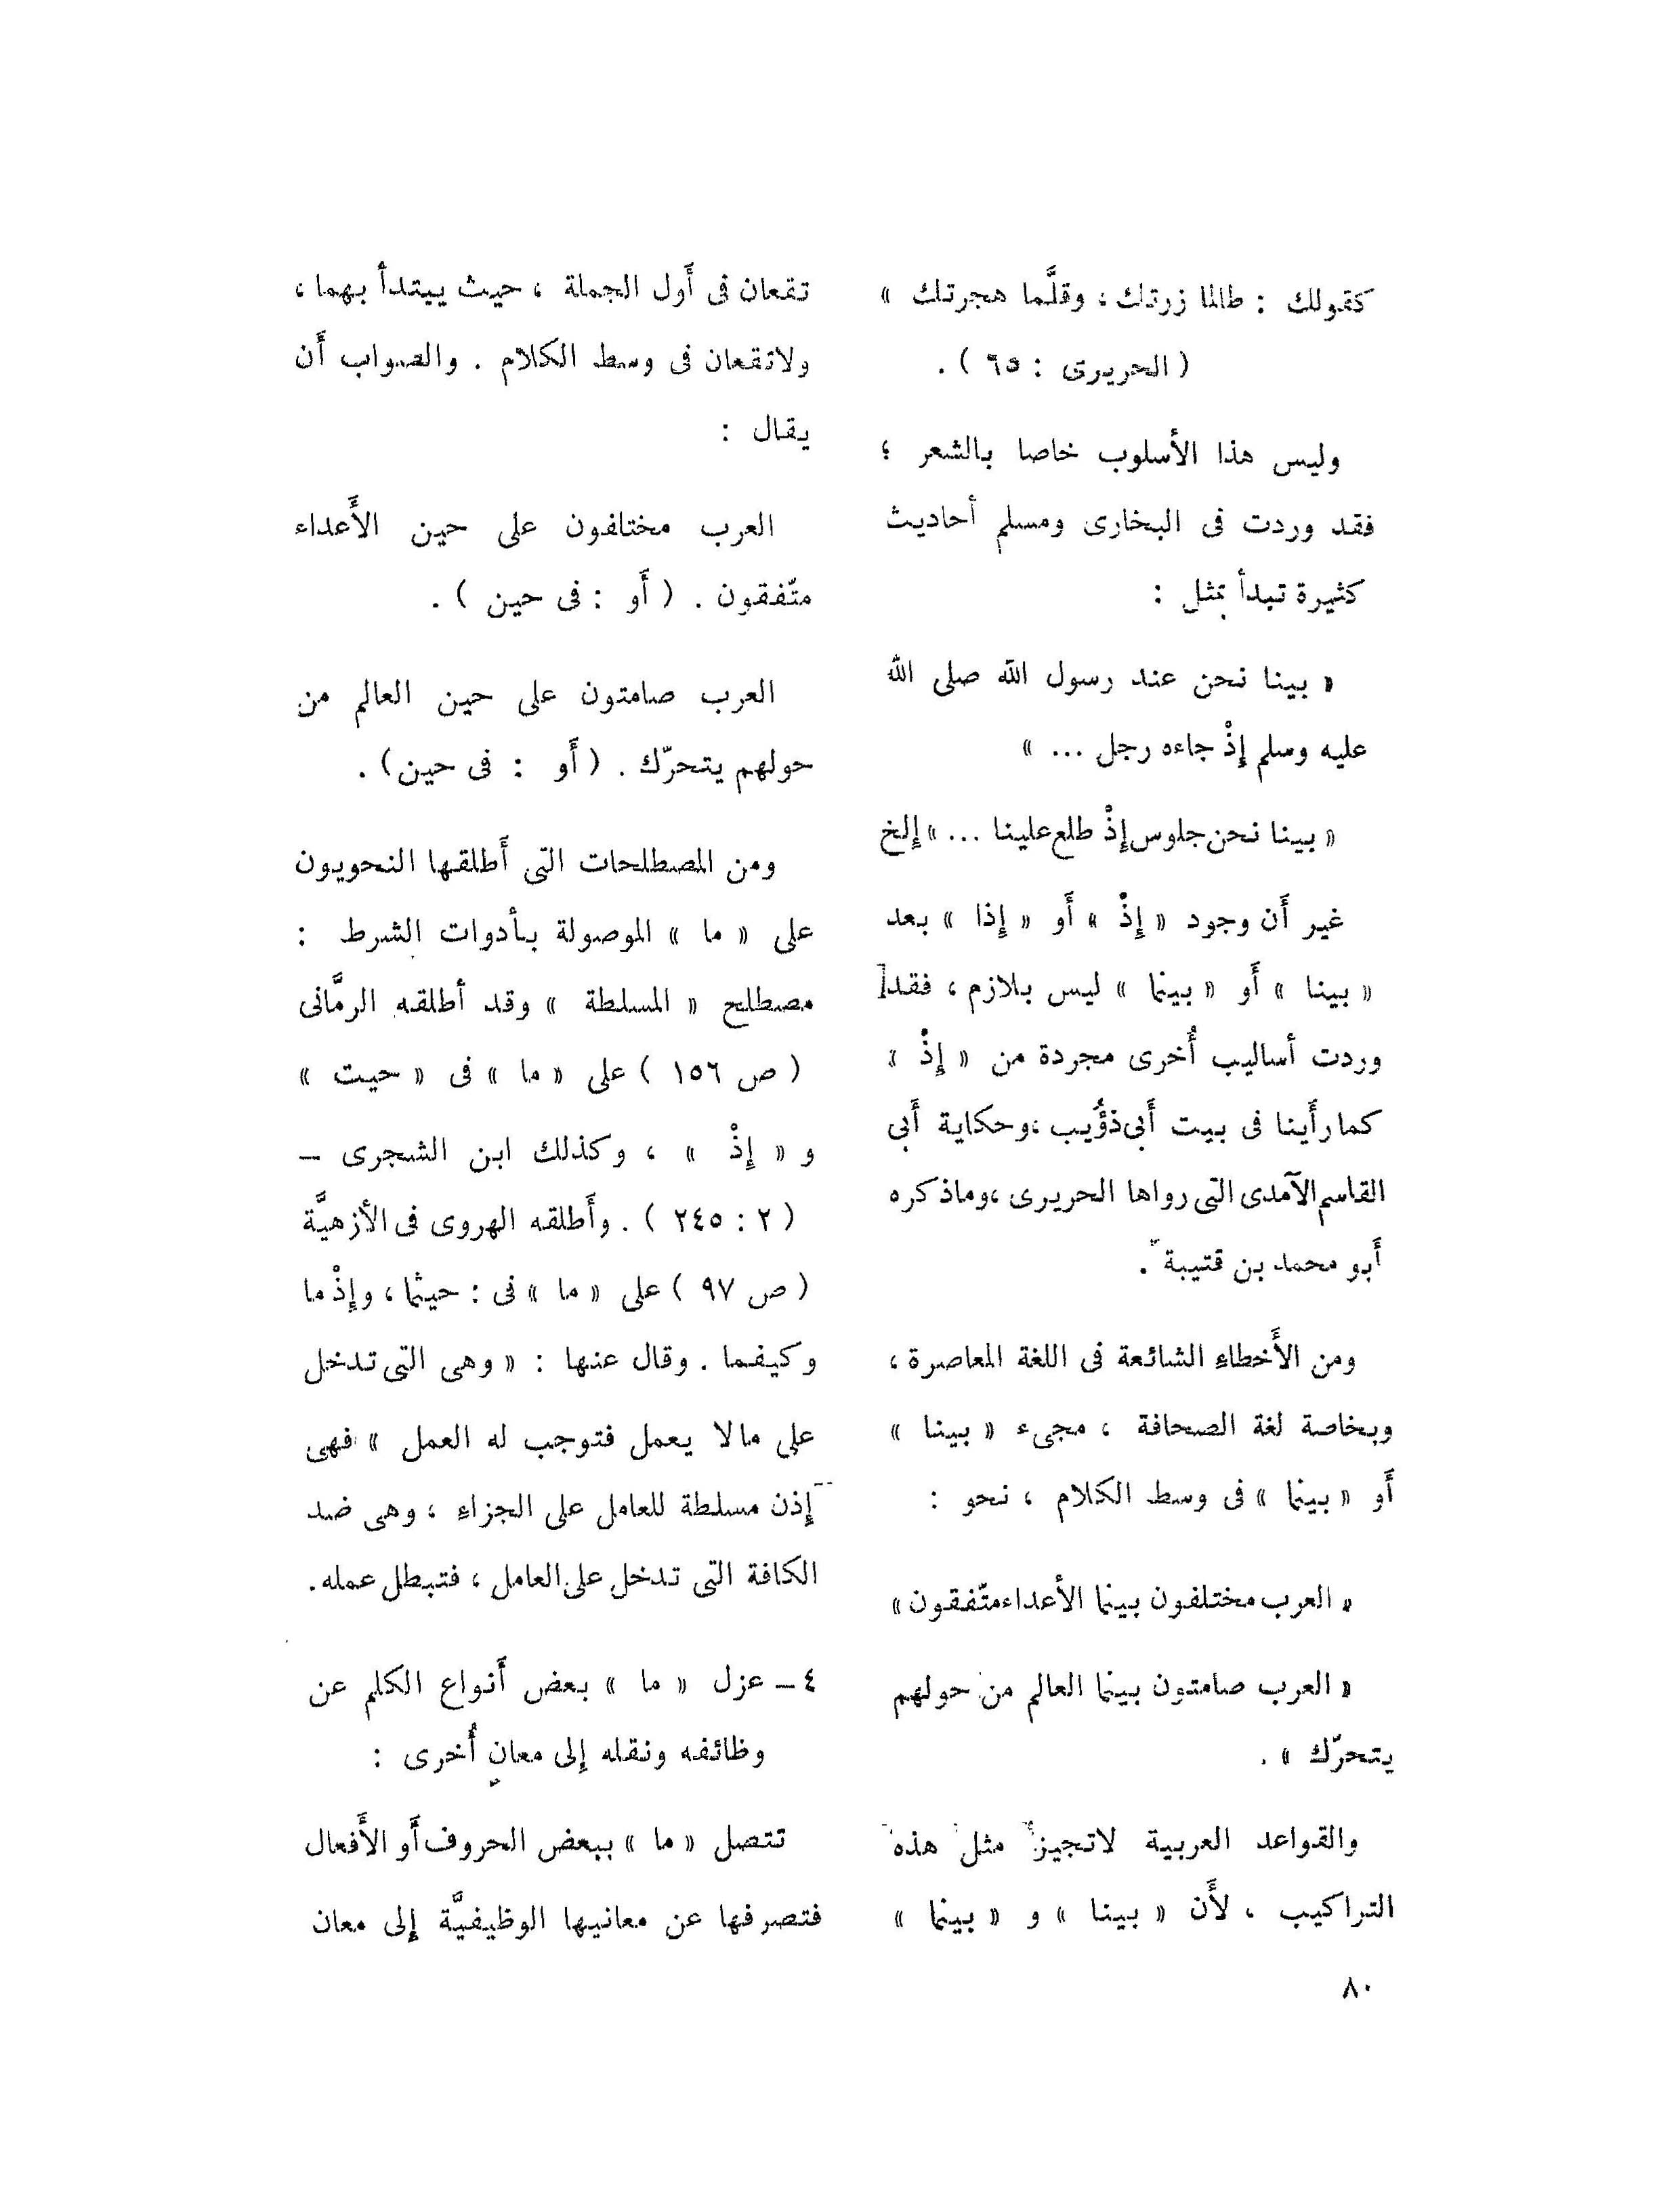 كقولك : طالما زرتك ، وقلَّما هجرتك »
( الحريرى : ٦٥ ) .
وليس هذا الأسلوب خاصا بالشعر ؛
فقد وردت فى البخارى ومسلم أحاديث
كثيرة تبدأ بمثل :
« بينا نحن عند رسول الله صلى الله
عليه وسلم إِذْ جاءه رجل ... »
« بينا نحن جلوس إِذْ طلع علينا ... » إلخ
غير أَن وجود « إِذْ » أَو « إِذا » بعد
« بينا » أَو « بينما » ليس بلازم ، فقد
وردت أساليب أُخرى مجردة من « إِذْ »
كما رأَينا فى بيت أَبى ذؤُيب ، وحكاية أَبى
القاسم الآمدى التى رواها الحريرى ، وماذكره
أَبو محمد بن قتيبة .
ومن الأَخطاءِ الشائعة فى اللغة المعاصرة ،
وبخاصة لغة الصحافة ، مجىء « بينا »
أَو « بينما » فى وسط الكلام ، نحو :
« العرب مختلفون بينما الأعداء متّفقون »
« العرب صامتون بينما العالم من حولهم
يتحرّك » .
والقواعد العربية لاتجيز مثل هذه
التراكيب ، لأَن « بينا » و « بينما »
تقعان فى أَول الجملة ، حيث يبتدأ بهما ،
ولاتقعان فى وسط الكلام . والصواب أَن
يقال :
العرب مختلفون على حين الأَعداء
متّفقون . ( أَو : فى حين ) .
العرب صامتون على حين العالم من
حولهم يتحرّك . ( أَو : فى حين ) .
ومن المصطلحات التى أَطلقها النحويون
على « ما » الموصولة بأدوات الشرط :
مصطلح « المسلطة » وقد أطلقه الرمَّانى
( ص ١٥٦ ) على « ما » فى « حيت »
و « إِذْ » ، وكذلك ابن الشجرى –
( ٢ : ٢٤٥ ) . وأَطلقه الهروى فى الأزهيَّة
( ص ٩٧ ) على « ما » فى : حيثما ، وإِذْ ما
وكيفما . وقال عنها : « وهى التى تدخل
على مالا يعمل فتوجب له العمل » فهى
إِذن مسلطة للعامل على الجزاءِ ، وهى ضد
الكافة التى تدخل على العامل ، فتبطل عمله .
٤ – عزل « ما » بعض أَنواع الكلم عن
وظائفه ونقله إِلى معانٍ أُخرى :
تتصل « ما » ببعض الحروف أَو الأَفعال
فتصرفها عن معانيها الوظيفيَّة إِلى معان
٨٠